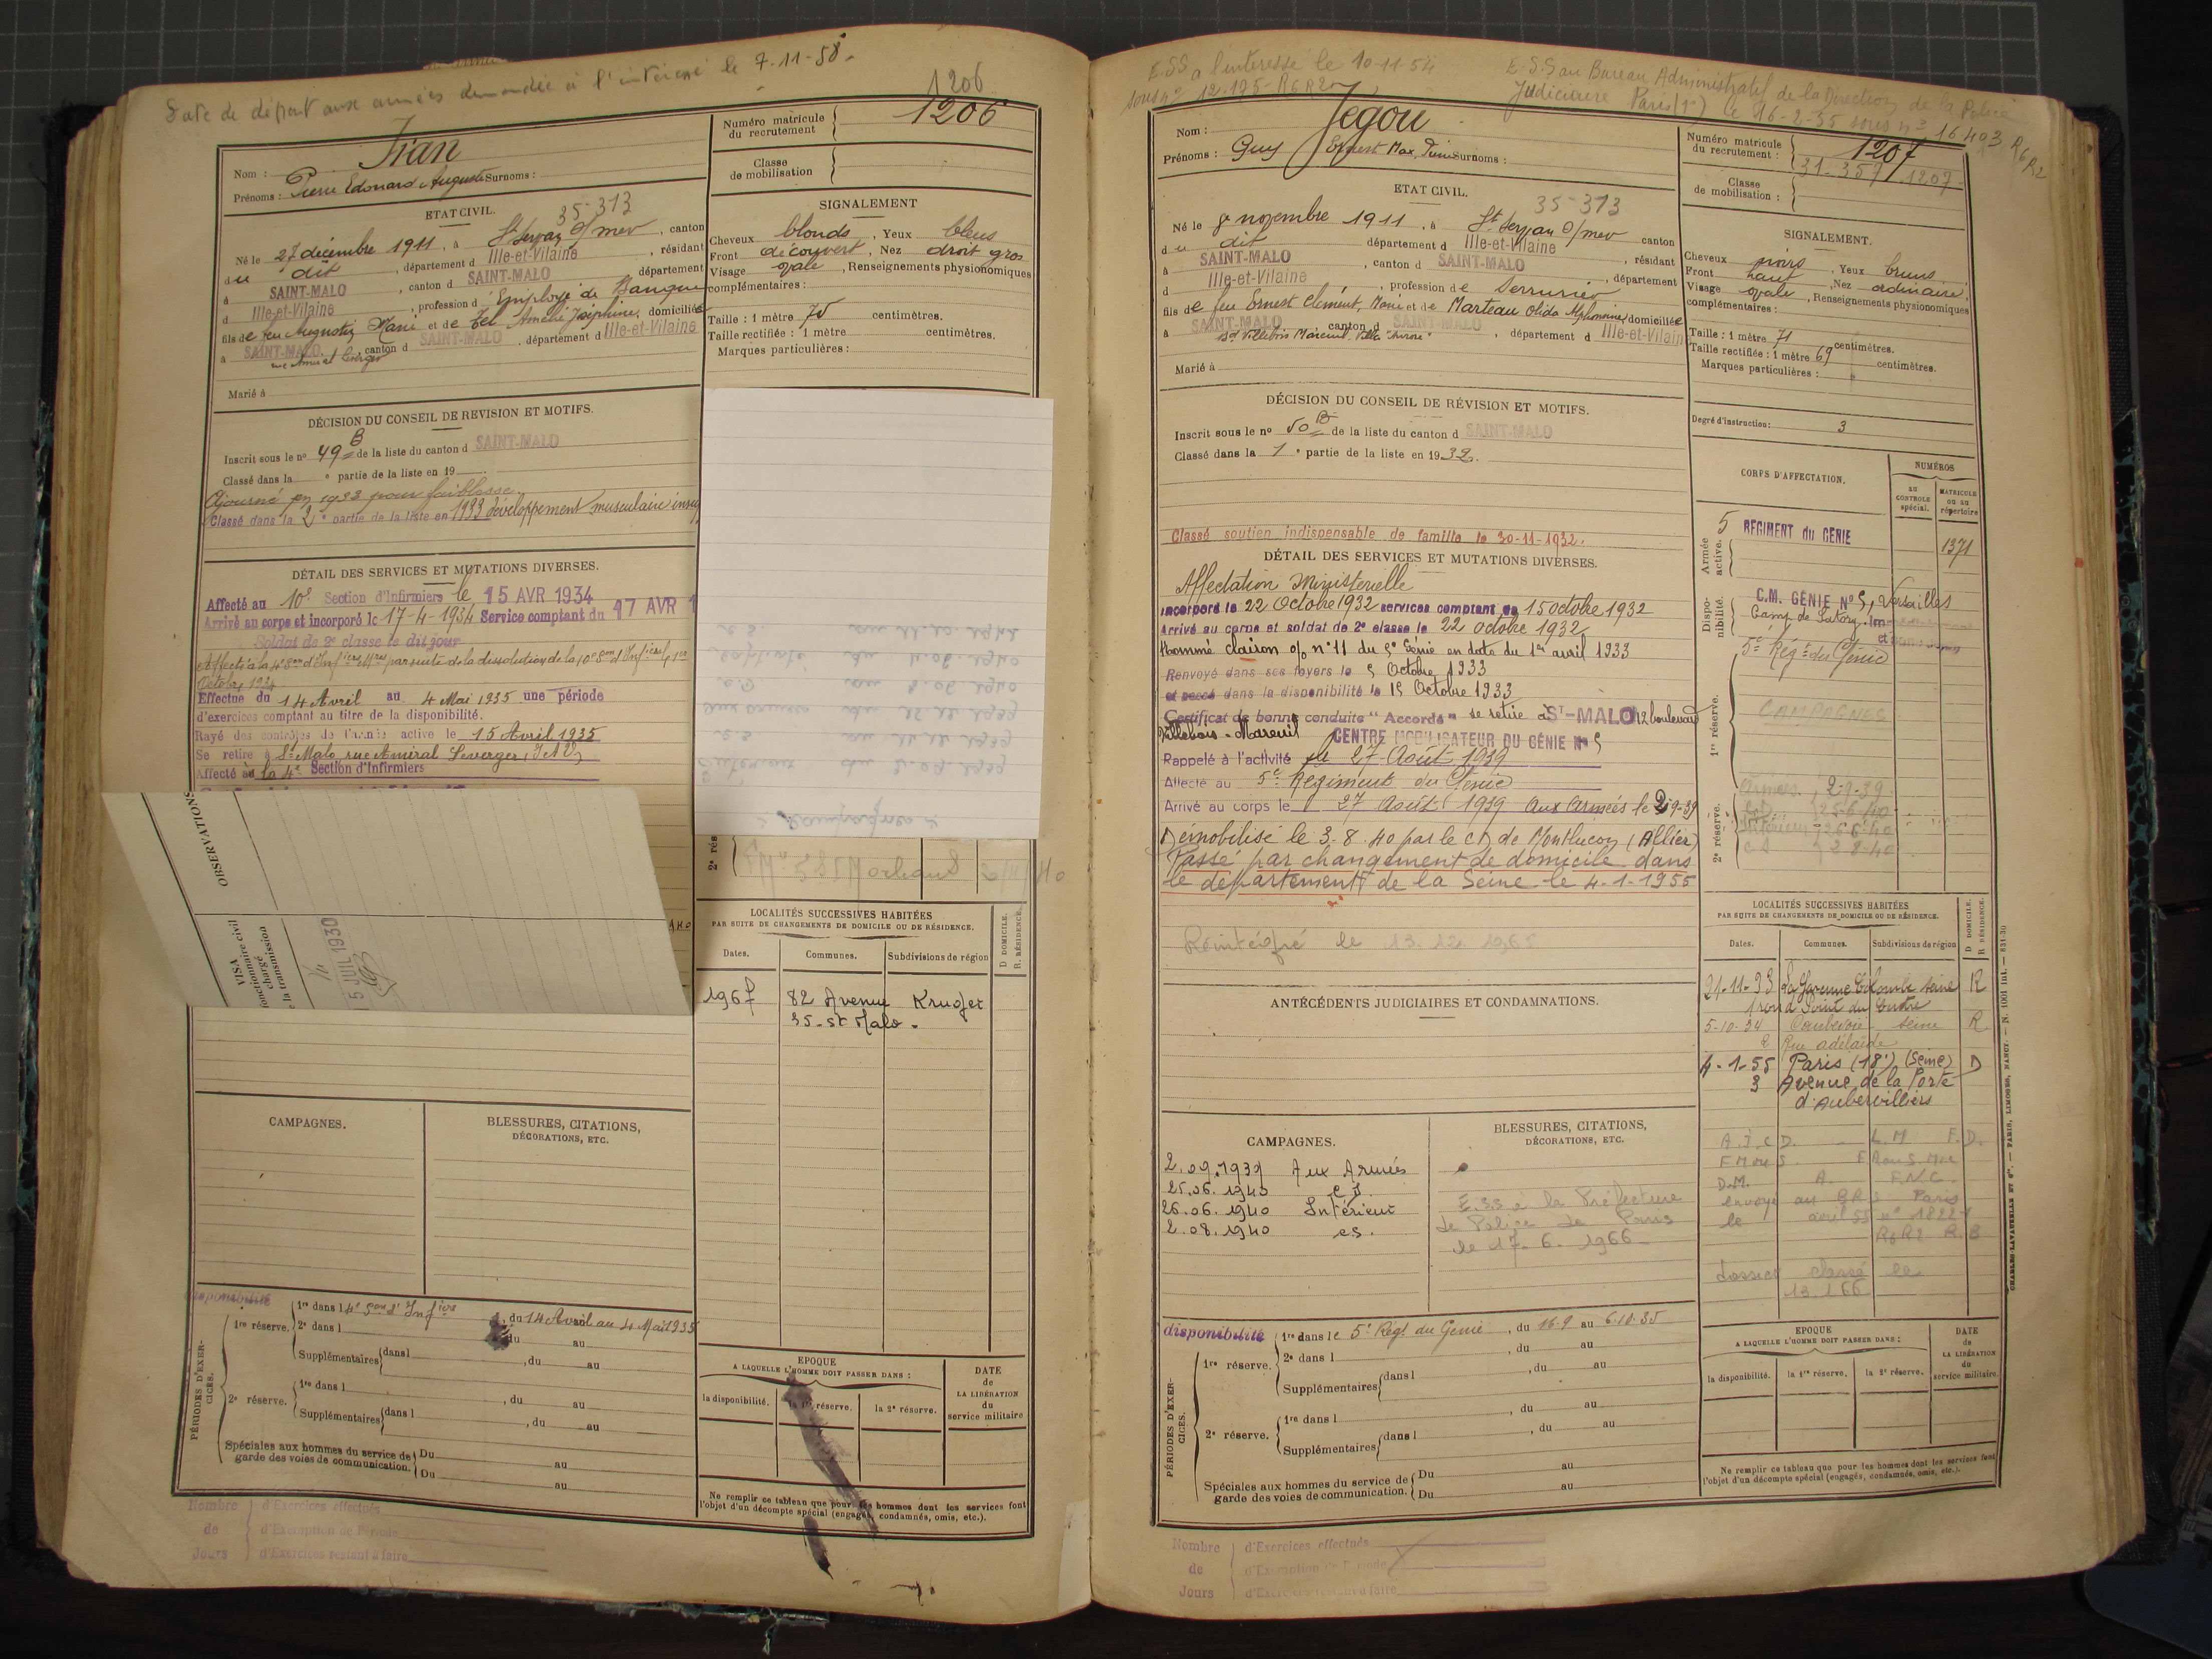 Date de départ aux armées demandée à l'intéressé le 7-11-58.
1206
Nom : Jran
Prénoms : Pierre Edouard Auguste Surnoms :
Numéro matricule du recrutement 1206
Classe de mobilisation
ETAT CIVIL. 35-313
Né le 27 décembre 1911, à St Servan s/mer, canton
du dit, département d Ille-et-Vilaine, résidant
à SAINT-MALO, canton d SAINT-MALO, département
d Ille-et-Vilaine, profession d Employé de Banque
fils de feu Augustin Marie et de Amélie Joséphine, domiciliés
à SAINT-MALO, canton d SAINT-MALO, département d Ille-et-Vilaine
Marié à
SIGNALEMENT
Cheveux blonds, Yeux bleus
Front découvert, Nez droit gros
Visage ovale, Renseignements physionomiques
complémentaires :
Taille : 1 mètre 70 centimètres.
Taille rectifiée : 1 mètre centimètres.
Marques particulières :
DÉCISION DU CONSEIL DE REVISION ET MOTIFS.
Inscrit sous le n° 49 B de la liste du canton d SAINT-MALO
Classé dans la e partie de la liste en 19
Ajourné en 1932 pour faiblesse.
Classé dans la 2e partie de la liste en 1933 développement musculaire insuf
DÉTAIL DES SERVICES ET MUTATIONS DIVERSES.
Affecté au 10e Section d'Infirmiers le 15 AVR 1934
Arrivé au corps et incorporé le 17-4-1934 Service comptant du 17 AVR 1
Soldat de 2e classe le dit jour
Affecté à la 4e Son d'Infiers Mres par suite de la dissolution de la 10e Son d'Infiers le 1er
Octobre 1934
Effectué du 14 Avril au 4 Mai 1935 une période
d'exercices comptant au titre de la disponibilité.
Rayé des contrôles de l'armée active le 15 Avril 1935
Se retire à St Malo rue Amiral Leverger (I et V)
Affecté à la 4e Section d'Infirmiers
OBSERVATIONS
VISA
fonctionnaire civil
chargé
la transmission
5 JUIL 1930
2e rés
LOCALITÉS SUCCESSIVES HABITÉES
PAR SUITE DE CHANGEMENTS DE DOMICILE OU DE RÉSIDENCE.
D DOMICILE. R. RÉSIDENCE.
Dates. Communes. Subdivisions de région
1967 82 Avenue Kruger
35-St Malo.
CAMPAGNES.
BLESSURES, CITATIONS,
DÉCORATIONS, ETC.
disponibilité
PÉRIODES D'EXERCICES.
1re réserve. 1re dans l 4e Son d'Infiers, du 14 Avril au 4 Mai 1935
2e dans l , du au
Supplémentaires dans l , du au
2e réserve. 1re dans l , du au
Supplémentaires dans l , du au
Spéciales aux hommes du service de garde des voies de communication. Du au
Du au
EPOQUE
A LAQUELLE L'HOMME DOIT PASSER DANS :
la disponibilité. la 1re réserve. la 2e réserve.
DATE de LA LIBÉRATION du service militaire
Ne remplir ce tableau que pour les hommes dont les services font
l'objet d'un décompte spécial (engagés, condamnés, omis, etc.).
Nombre de Jours
d'Exercices effectués
d'Exemption de Période
d'Exercices restant à faire
E.SS à l'intéressé le 10-11-54
sous n° 12.175-R6R2
E.S.S au Bureau Administratif de la Direction de la Police
Judiciaire Paris (1er) le 16-2-55 sous n° 16403 R6 R2
Nom : Jégou
Prénoms : Guy Ernest Max Pierre Surnoms :
Numéro matricule du recrutement : 1207
31-357 1207-
Classe de mobilisation :
ETAT CIVIL.
35-373
Né le 8 novembre 1911, à St Servan s/mer canton
du dit département d Ille-et-Vilaine, résidant
à SAINT-MALO, canton d SAINT-MALO, département
d Ille-et-Vilaine, profession de Serrurier
fils de feu Ernest Clément Marie et de Marteau Olida Alphonsine, domiciliée
à SAINT-MALO canton d SAINT-MALO, département d Ille-et-Vilaine
Bd Villebois Mareuil. Villa "Aurore"
Marié à
SIGNALEMENT.
Cheveux noirs, Yeux bruns
Front haut, Nez ordinaire
Visage ovale, Renseignements physionomiques
complémentaires :
Taille : 1 mètre 71 centimètres.
Taille rectifiée : 1 mètre 69 centimètres.
Marques particulières :
Degré d'instruction : 3
DÉCISION DU CONSEIL DE RÉVISION ET MOTIFS.
Inscrit sous le n° 50 B de la liste du canton d SAINT-MALO
Classé dans la 1e partie de la liste en 1932.
Classé soutien indispensable de famille le 30-11-1932.
DÉTAIL DES SERVICES ET MUTATIONS DIVERSES.
Affectation Ministerielle
Incorporé le 22 Octobre 1932 services comptant du 15 octobre 1932
Arrivé au corps et soldat de 2e classe le 22 octobre 1932
Nommé clairon o/o n° 11 du 5e Génie en date du 1er avril 1933
Renvoyé dans ses foyers le 5 Octobre 1933
et passé dans la disponibilité le 15 Octobre 1933
Certificat de bonne conduite "Accordé" se retire à ST-MALO 12 boulevard
Villebois-Mareuil CENTRE MOBILISATEUR DU GÉNIE N° 5
Rappelé à l'activité le 27 Août 1939
Affecté au 5e Régiment du Génie
Arrivé au corps le 27 Août 1939 aux armées le 2-9-39
Démobilisé le 3-8-40 par le CD de Montluçon (Allier)
Passé par changement de domicile dans
le département de la Seine le 4-1-1955
Réintégré le 13.12.1965
CORPS D'AFFECTATION.
NUMÉROS
au CONTROLE spécial. MATRICULE ou au répertoire
Armée active. 5 RÉGIMENT du GÉNIE 1371
Disponibilité. C.M. GÉNIE N° 5, Versailles
Camp de Satory.
1re réserve. 5e Régt du Génie
CAMPAGNES
2e réserve.
Armées 2-9-39
CD 25-6-40
Intérieur 26-6-40
CS 2-8-40
ANTÉCÉDENTS JUDICIAIRES ET CONDAMNATIONS.
LOCALITÉS SUCCESSIVES HABITÉES
PAR SUITE DE CHANGEMENTS DE DOMICILE OU DE RÉSIDENCE.
D DOMICILE. R RÉSIDENCE.
Dates. Communes. Subdivisions de région
21-11-33 La Garenne Colombe Seine R
1 rond Point du Centre
5-10-34 Courbevoie Seine R
2 Rue adelaide
4-1-55 Paris (18e) (Seine) D
3 Avenue de la Porte
d'Aubervilliers
D.M. A. F.N.C.
envoyé au B.R. Paris
le avril 55 n° 18221
R6R2 R.B
dossier classé le
13.1.66
CAMPAGNES.
2.09.1939 Aux Armées
25.06.1940 CD
26.06.1940 Intérieur
2.08.1940 cs.
BLESSURES, CITATIONS,
DÉCORATIONS, ETC.
E.SS à la Préfecture
de Police de Paris
le 17.6.1966
disponibilité
PÉRIODES D'EXERCICES.
1re réserve. 1re dans le 5e Régt du Génie, du 16-9 au 6-10-35
2e dans l , du au
Supplémentaires dans l , du au
2e réserve. 1re dans l , du au
Supplémentaires dans l , du au
Spéciales aux hommes du service de garde des voies de communication. Du au
Du au
EPOQUE
A LAQUELLE L'HOMME DOIT PASSER DANS :
la disponibilité. la 1re réserve. la 2e réserve.
DATE de LA LIBÉRATION du service militaire.
Ne remplir ce tableau que pour les hommes dont les services font
l'objet d'un décompte spécial (engagés, condamnés, omis, etc.).
CHARLES-LAVAUZELLE ET Cie. — PARIS, LIMOGES, NANCY. — N. 1001 int. — 831-30
Nombre de Jours
d'Exercices effectués
d'Exemption de Période
d'Exercices restant à faire